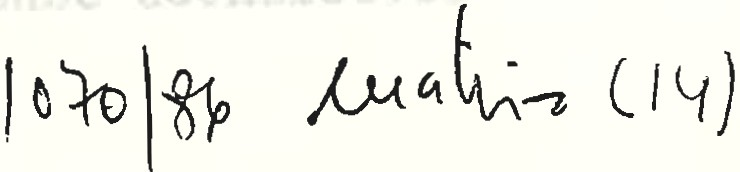 1070/86 matriz (14)